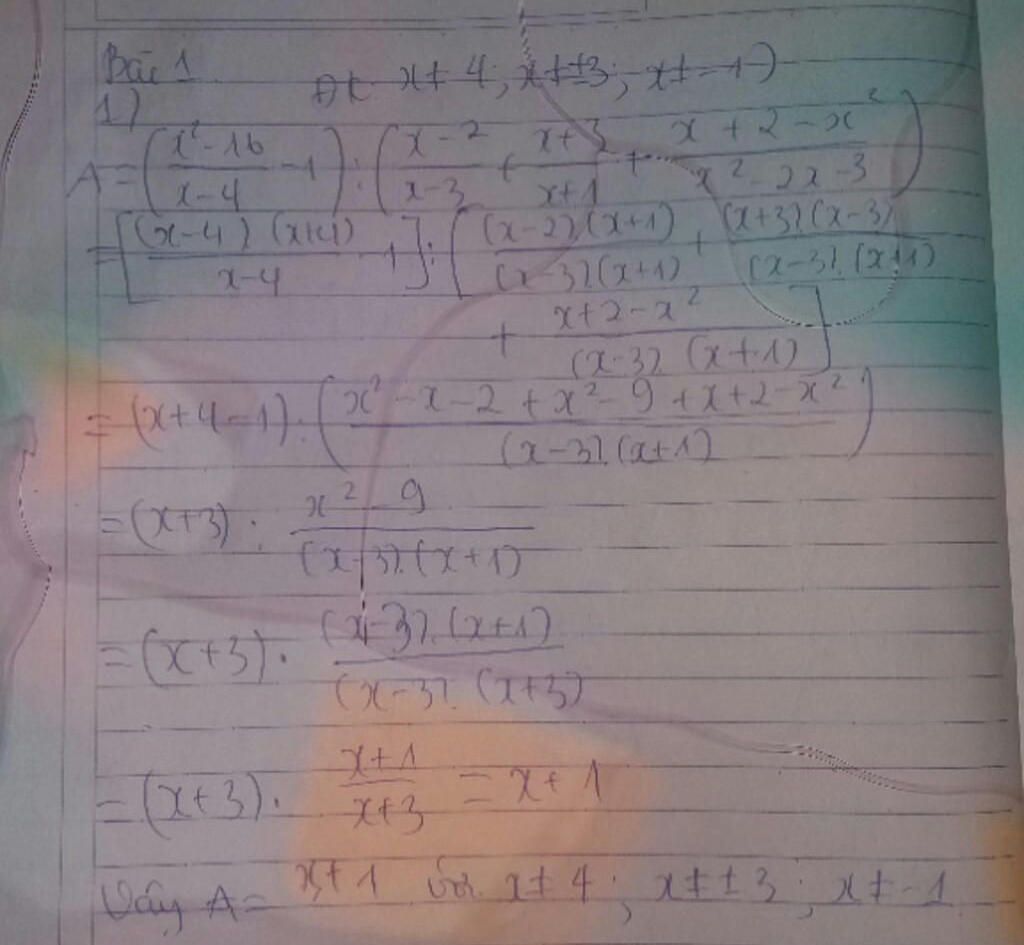 Bài 1
1) ĐK x ≠ 4; x ≠ ±3; x ≠ -1)
A = ((x² - 16)/(x - 4) - 1) : ((x - 2)/(x - 3) + (x + 3)/(x + 1) + (x + 2 - x²)/(x² - 2x - 3))
= [(x - 4).(x + 4)/(x - 4) - 1] : [(x - 2).(x + 1)/(x - 3).(x + 1) + (x + 3).(x - 3)/(x - 3).(x + 1)
+ (x + 2 - x²)/(x - 3).(x + 1)]
= (x + 4 - 1) : ((x² - x - 2 + x² - 9 + x + 2 - x²)/(x - 3).(x + 1))
= (x + 3) : (x² - 9)/(x - 3).(x + 1)
= (x + 3) . (x - 3).(x + 1)/(x - 3).(x + 3)
= (x + 3) . (x + 1)/(x + 3) = x + 1
Vậy A = x + 1 với x ≠ 4; x ≠ ±3; x ≠ -1